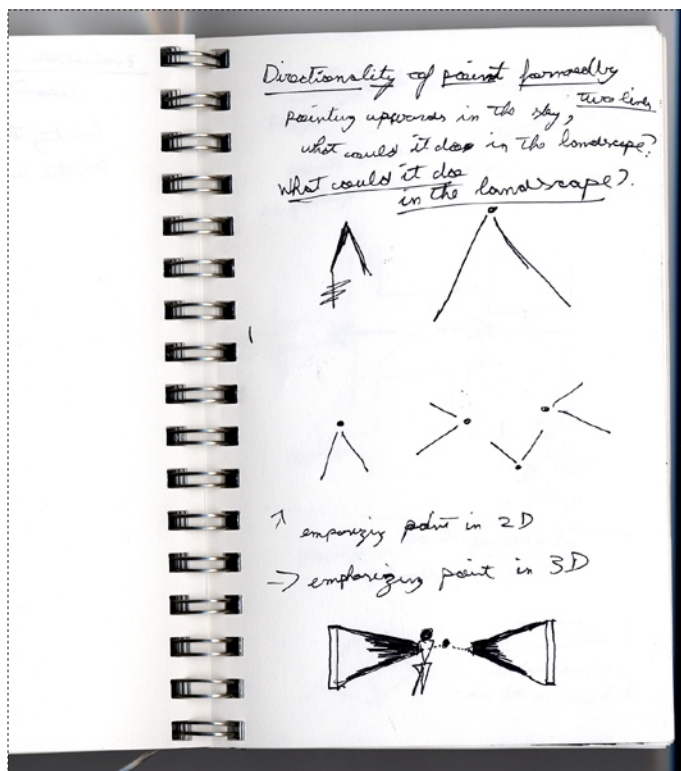 Directionality of point formed by
two lines
pointing upwards in the sky,
what could it do in the landscape?
What could it do
in the landscape?
↑ emporizing point in 2D
→ emphorizing point in 3D